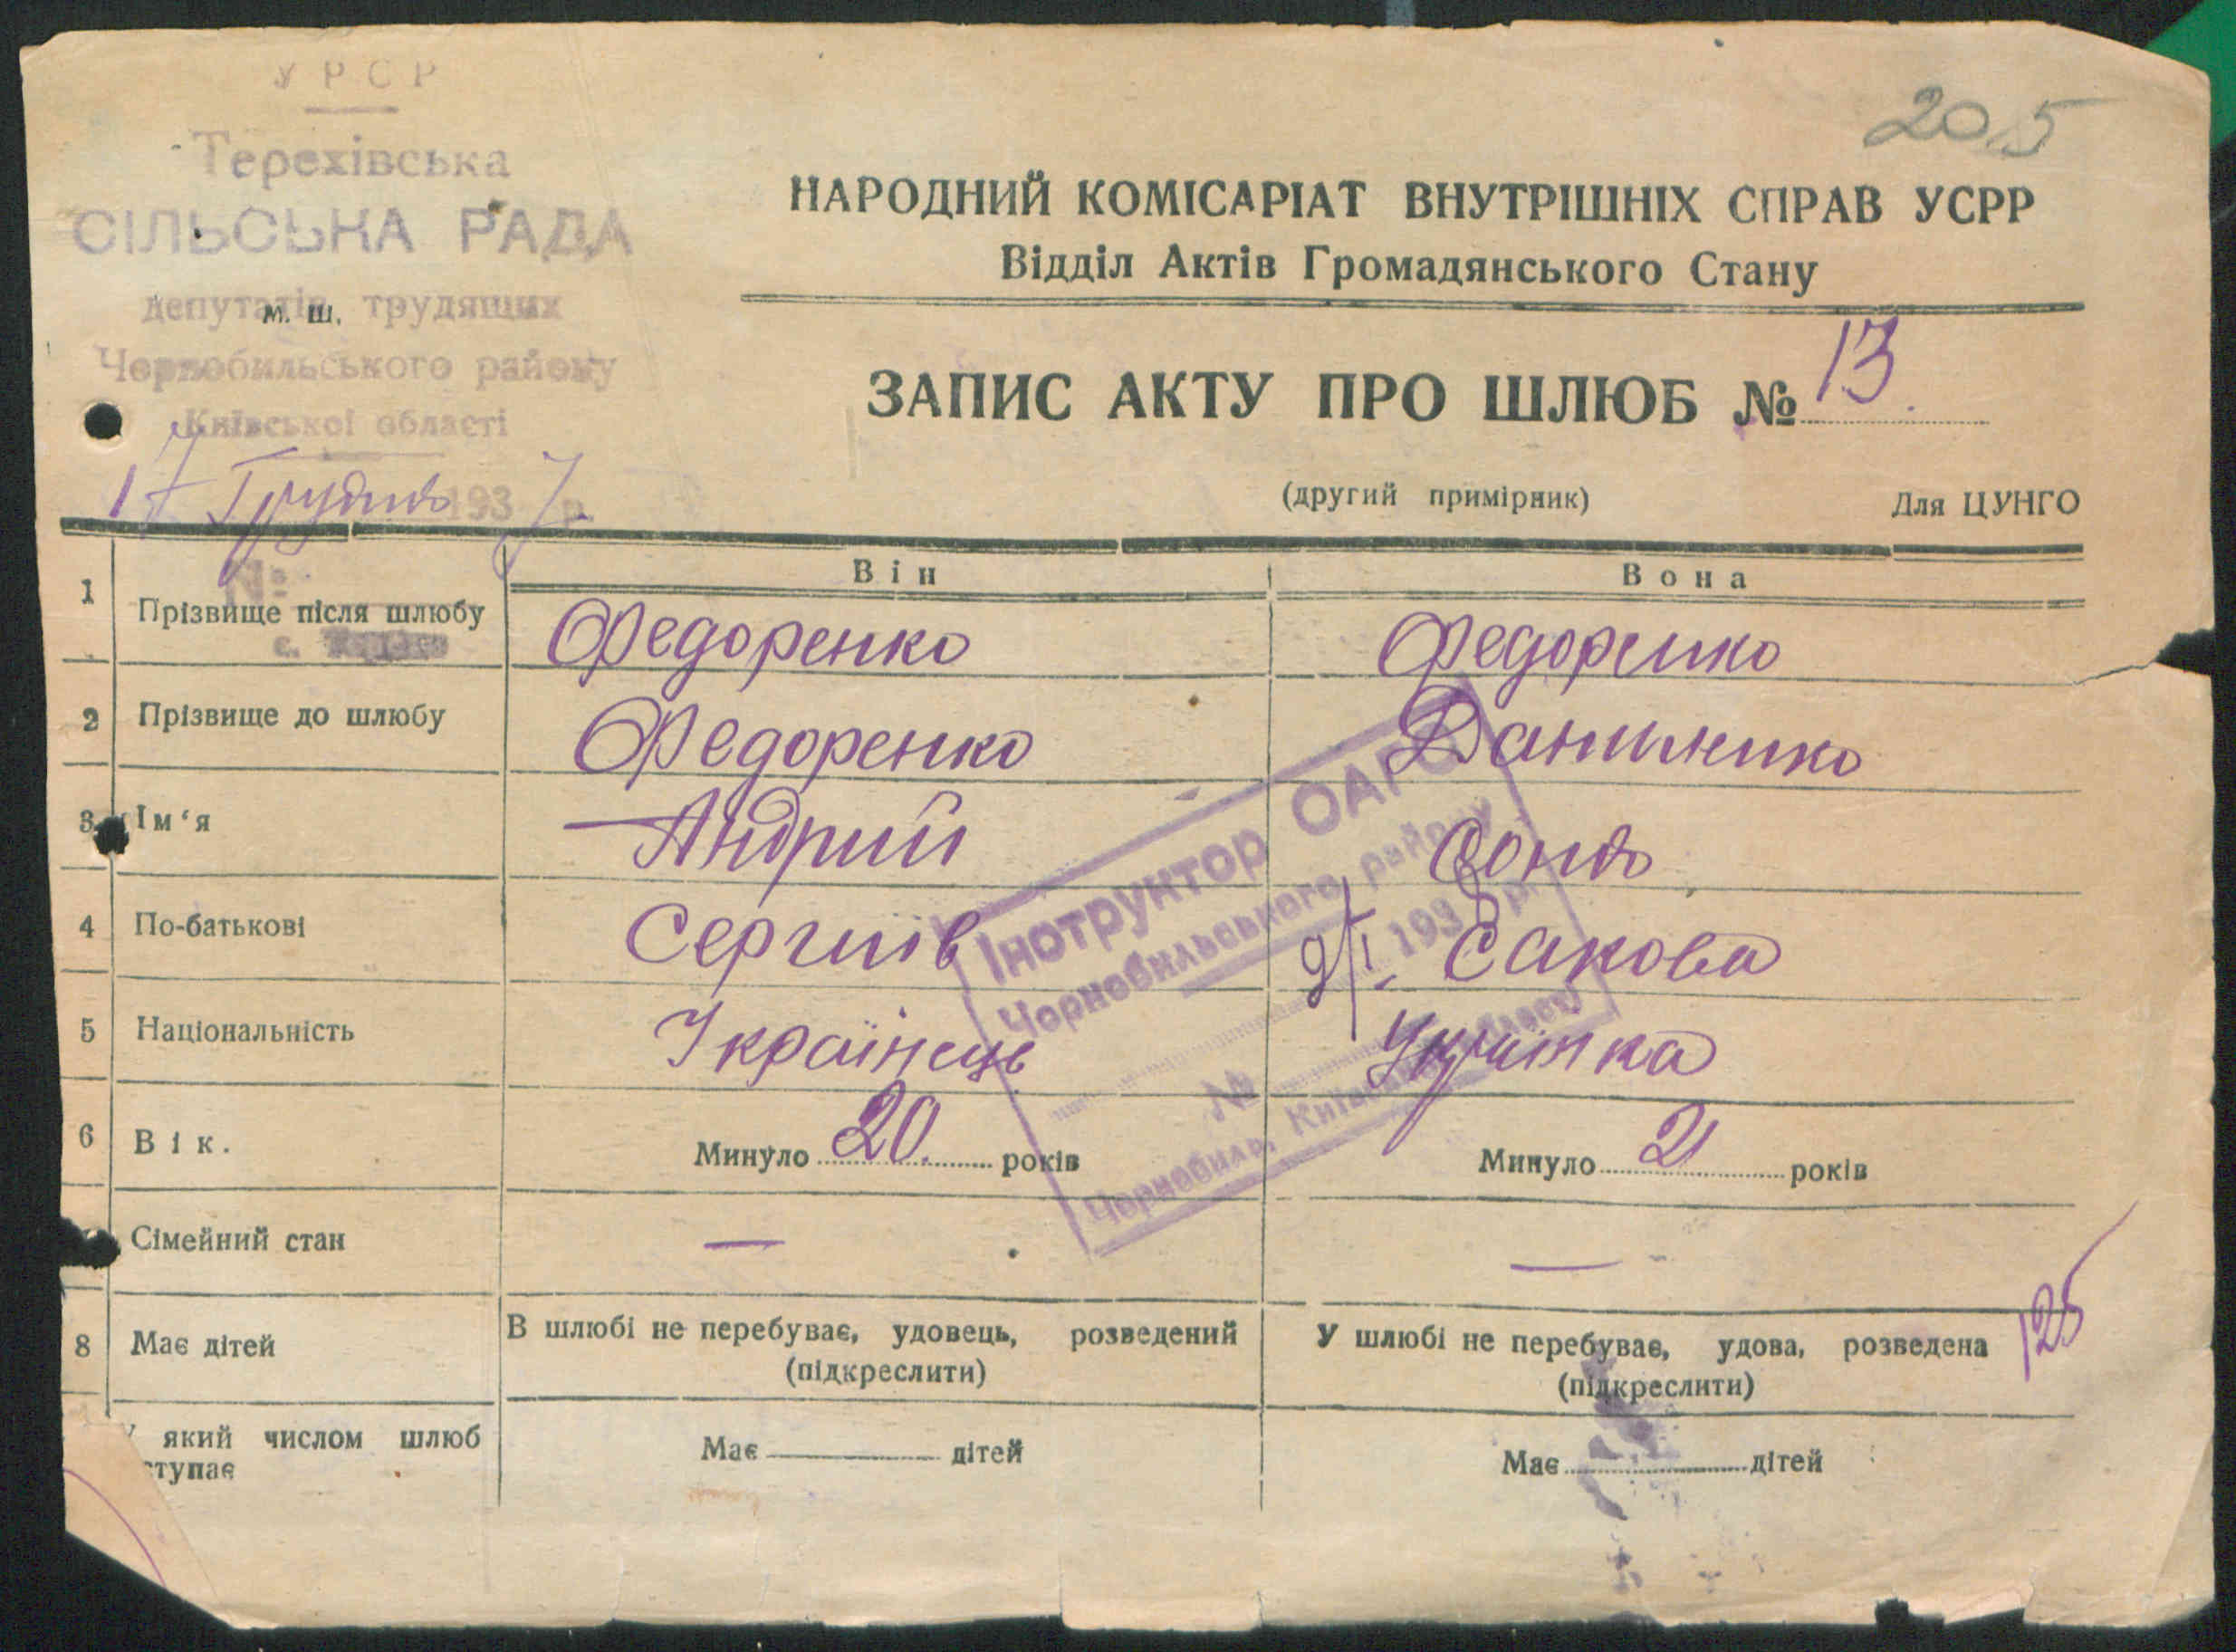 УРСР
Терехівська
СІЛЬСЬКА РАДА
депутатів трудящих
м. ш.
Чорнобильського району
Київської області
17 Грудня 1937 р.
№
с.
205
НАРОДНИЙ КОМІСАРІАТ ВНУТРІШНІХ СПРАВ УСРР
Відділ Актів Громадянського Стану
ЗАПИС АКТУ ПРО ШЛЮБ № 13.
(другий примірник) Для ЦУНГО
Він Вона
1 Прізвище після шлюбу Федоренко Федоренко
2 Прізвище до шлюбу Федоренко Даниленко
3 Ім‘я Андрий Соня
4 По-батькові Сергиів Сакова
5 Національність Українець Українка
6 Вік. Минуло 20. років Минуло 21 років
Сімейний стан — —
8 Має дітей В шлюбі не перебуває, удовець, розведений У шлюбі не перебуває, удова, розведена
(підкреслити) (підкреслити)
який числом шлюб
ступає Має дітей Має дітей
125
Інструктор ОАГС
Чорнобильського району
9/I 193 р.
№
Чорнобиль, Київської області